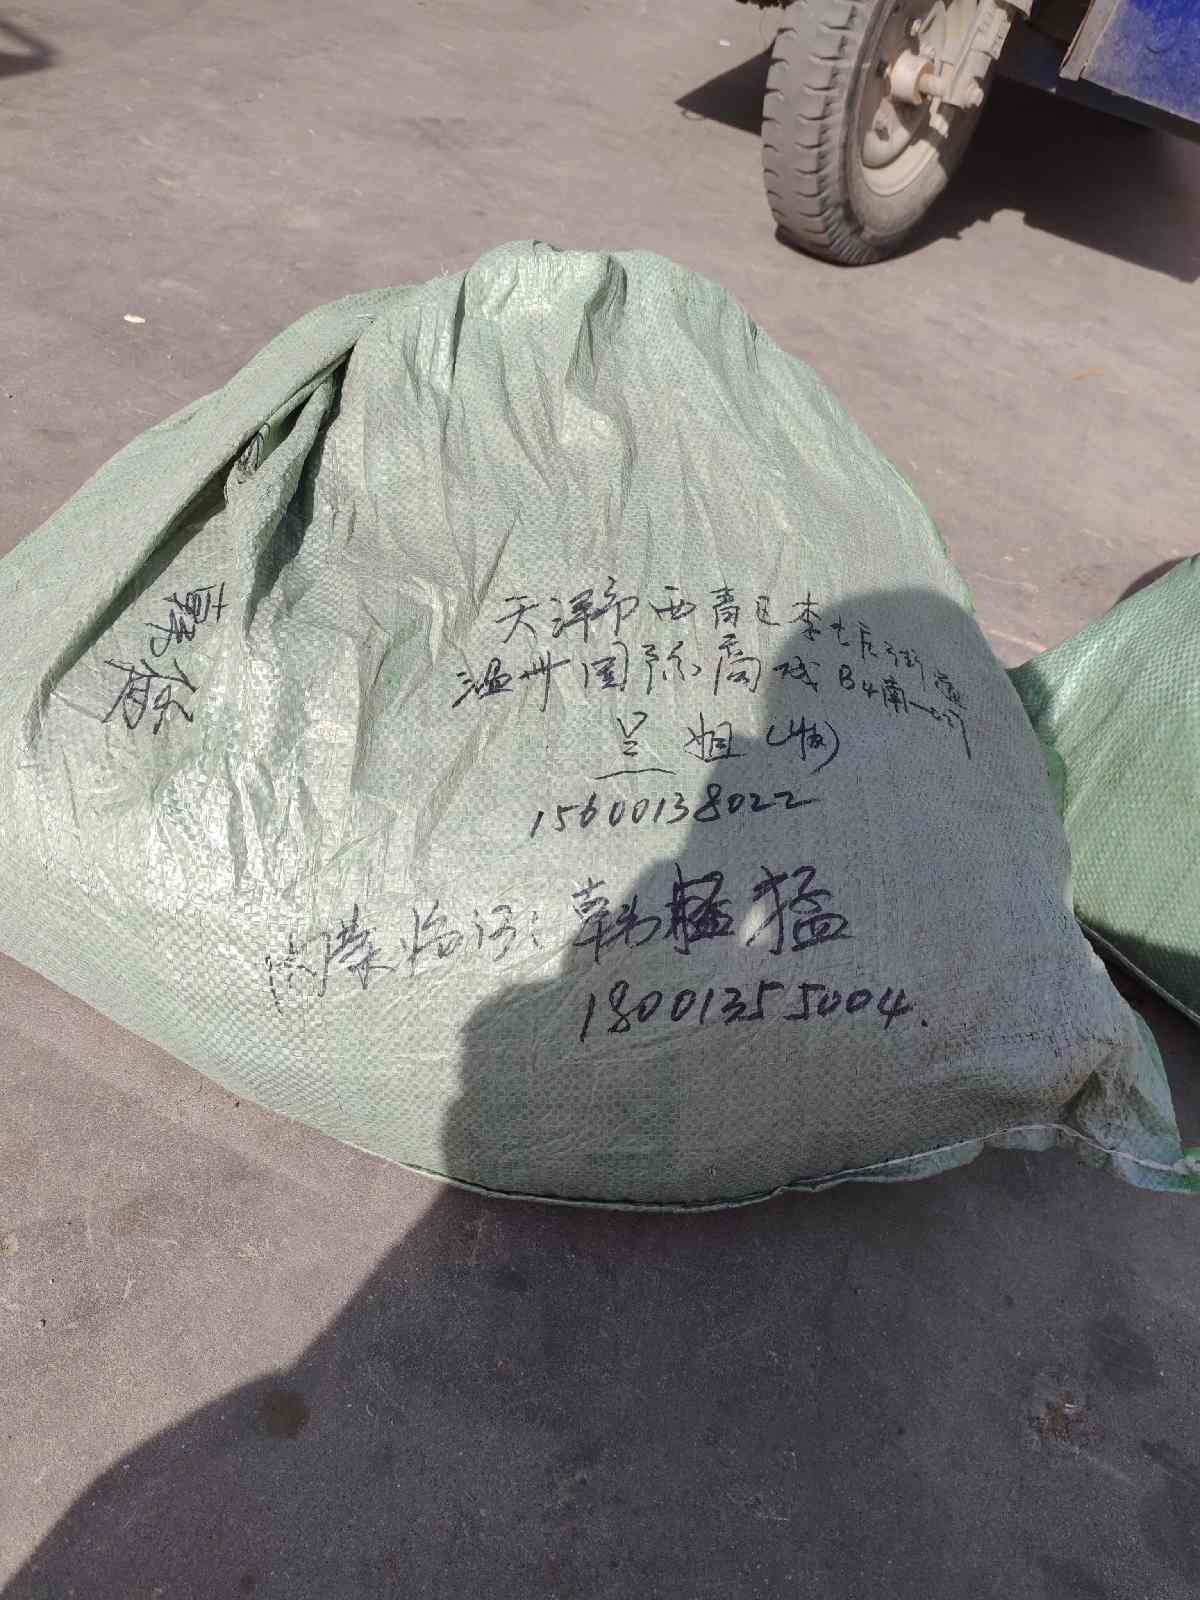 天津市西青区李七庄街
温州国际商城B4南一
兰姐(收)
15600138022
内蒙临河:韩猛
18001355004.